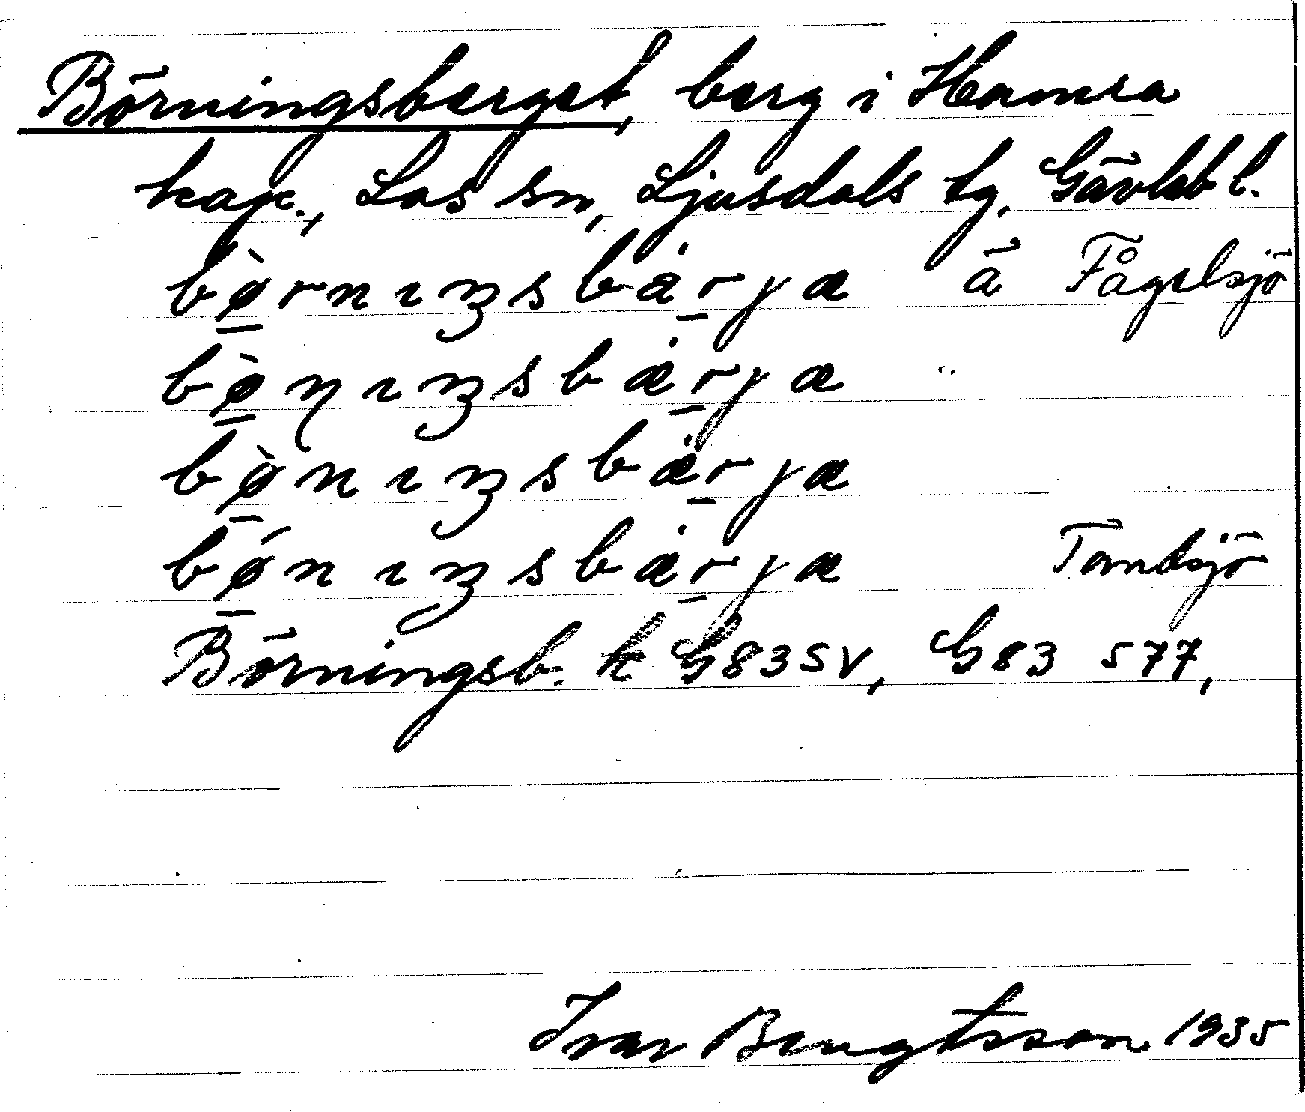 Börningsberget, berg i Hamra
kap., Los sn, Ljusdals tg, Gävleb l.
bø̀rnıŋsbárja ä Fågelsjö
bø̀ņıŋsbǽrja "
bø̀nıŋsbǽrja
bǿnıŋsbárja Tandsjö
Börningsb. k G83SV, G83 577,
Ivar Bengtsson 1935